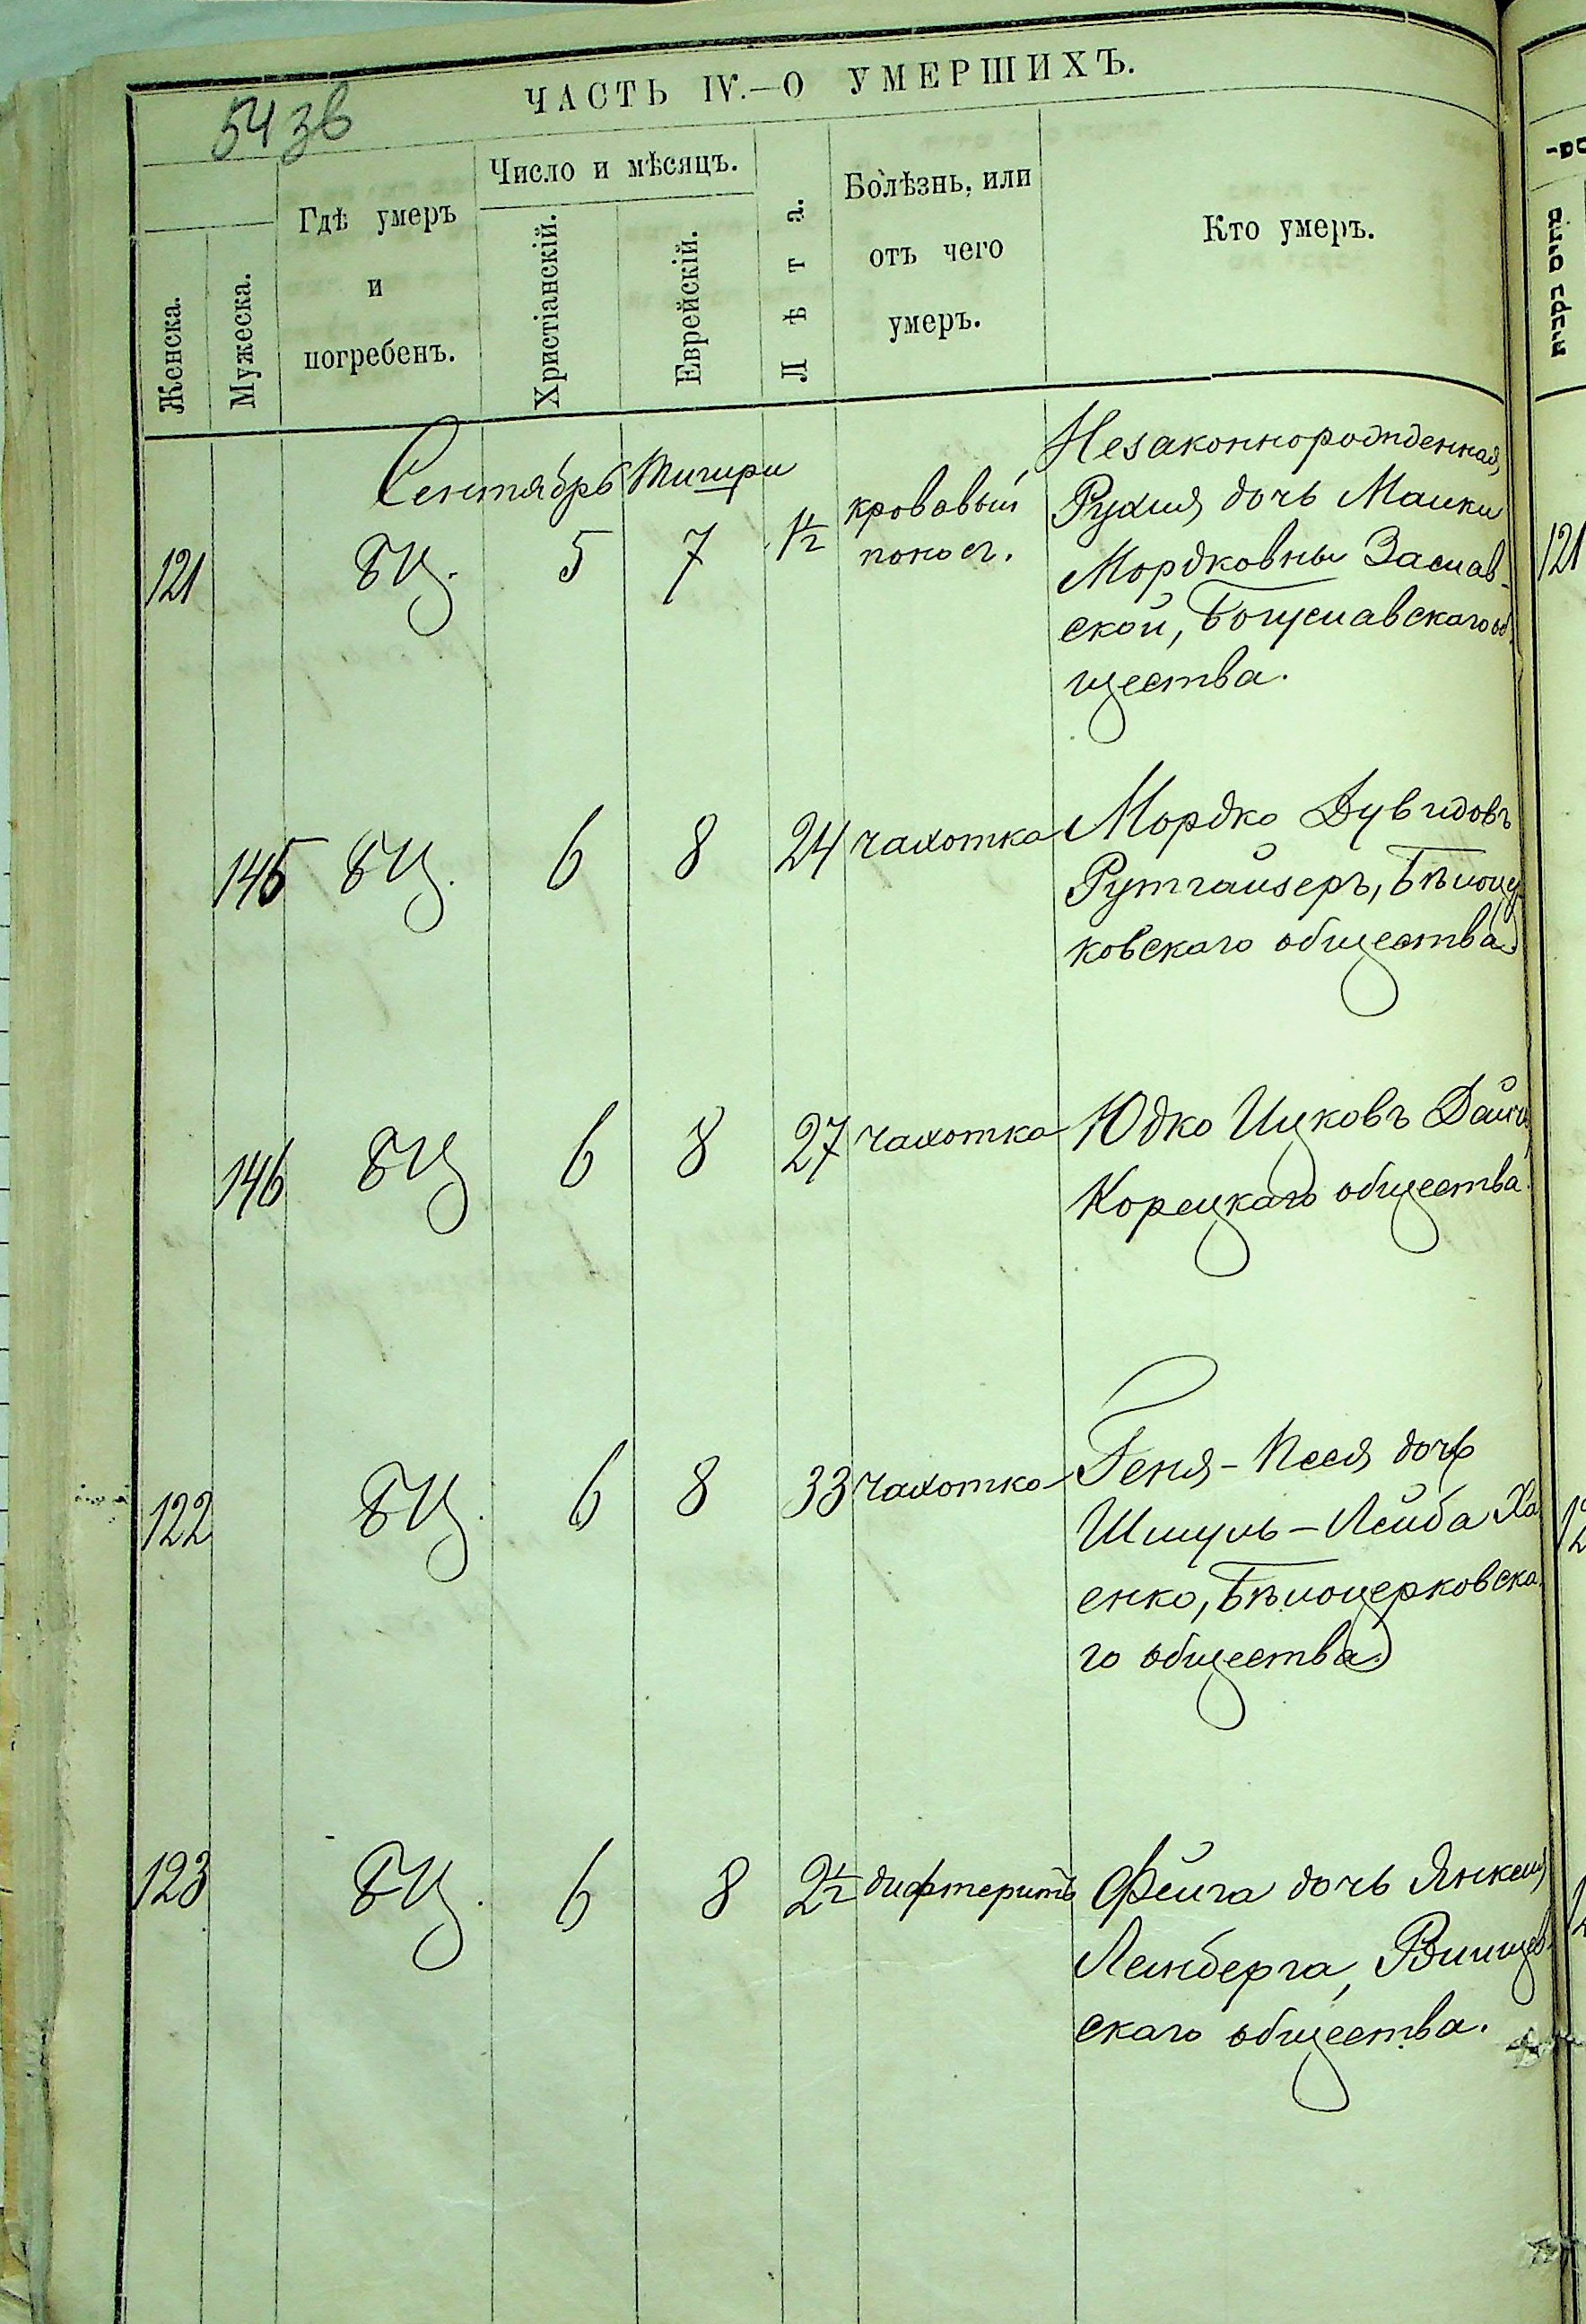 54 зв
ЧАСТЬ IV.—О УМЕРШИХЪ.
Женска.
Мужеска.
Гдѣ умеръ
и
погребенъ.
Число и мѣсяцъ.
Христіанскій.
Еврейскій.
Лѣта.
Болѣзнь, или
отъ чего
умеръ.
Кто умеръ.
Сентябрь Тишри
121 БЦ. 5 7 1½ кровавый
поносъ.
Незаконнорожденная
Рухля дочь Малки
Мордковны Заслав-
ской, Богуславскаго об
щества.
145 БЦ. 6 8 24 чахотка Мордко Дувидовъ
Рутгайзеръ, Бѣлоце
ковскаго общества.
146 БЦ 6 8 27 чахотка Юдко Ицковъ
Корецкаго общества.
122 БЦ. 6 8 33 чахотка Геня-Песя дочь
Шмуль-Лейба Ха
енко, Бѣлоцерковска
го общества.
123 БЦ. 6 8 2½ дифтеритъ Фейга дочь Янкеля
Ленберга, Ржищев
скаго общества.
121